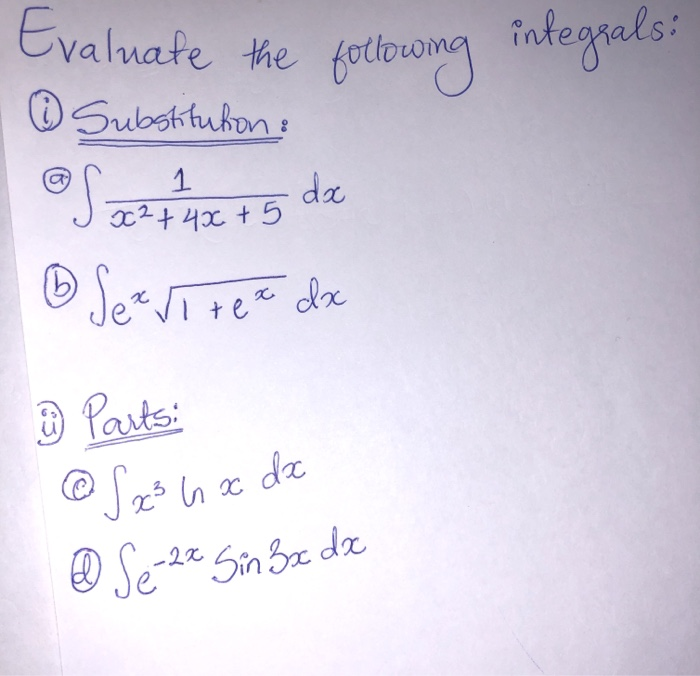 Evaluate the following integrals:
(i) Substitution:
(a) ∫ 1/(x² + 4x + 5) dx
(b) ∫e^x √(1 + e^x) dx
(ii) Parts:
(c) ∫x³ ln x dx
(d) ∫e^(-2x) Sin 3x dx